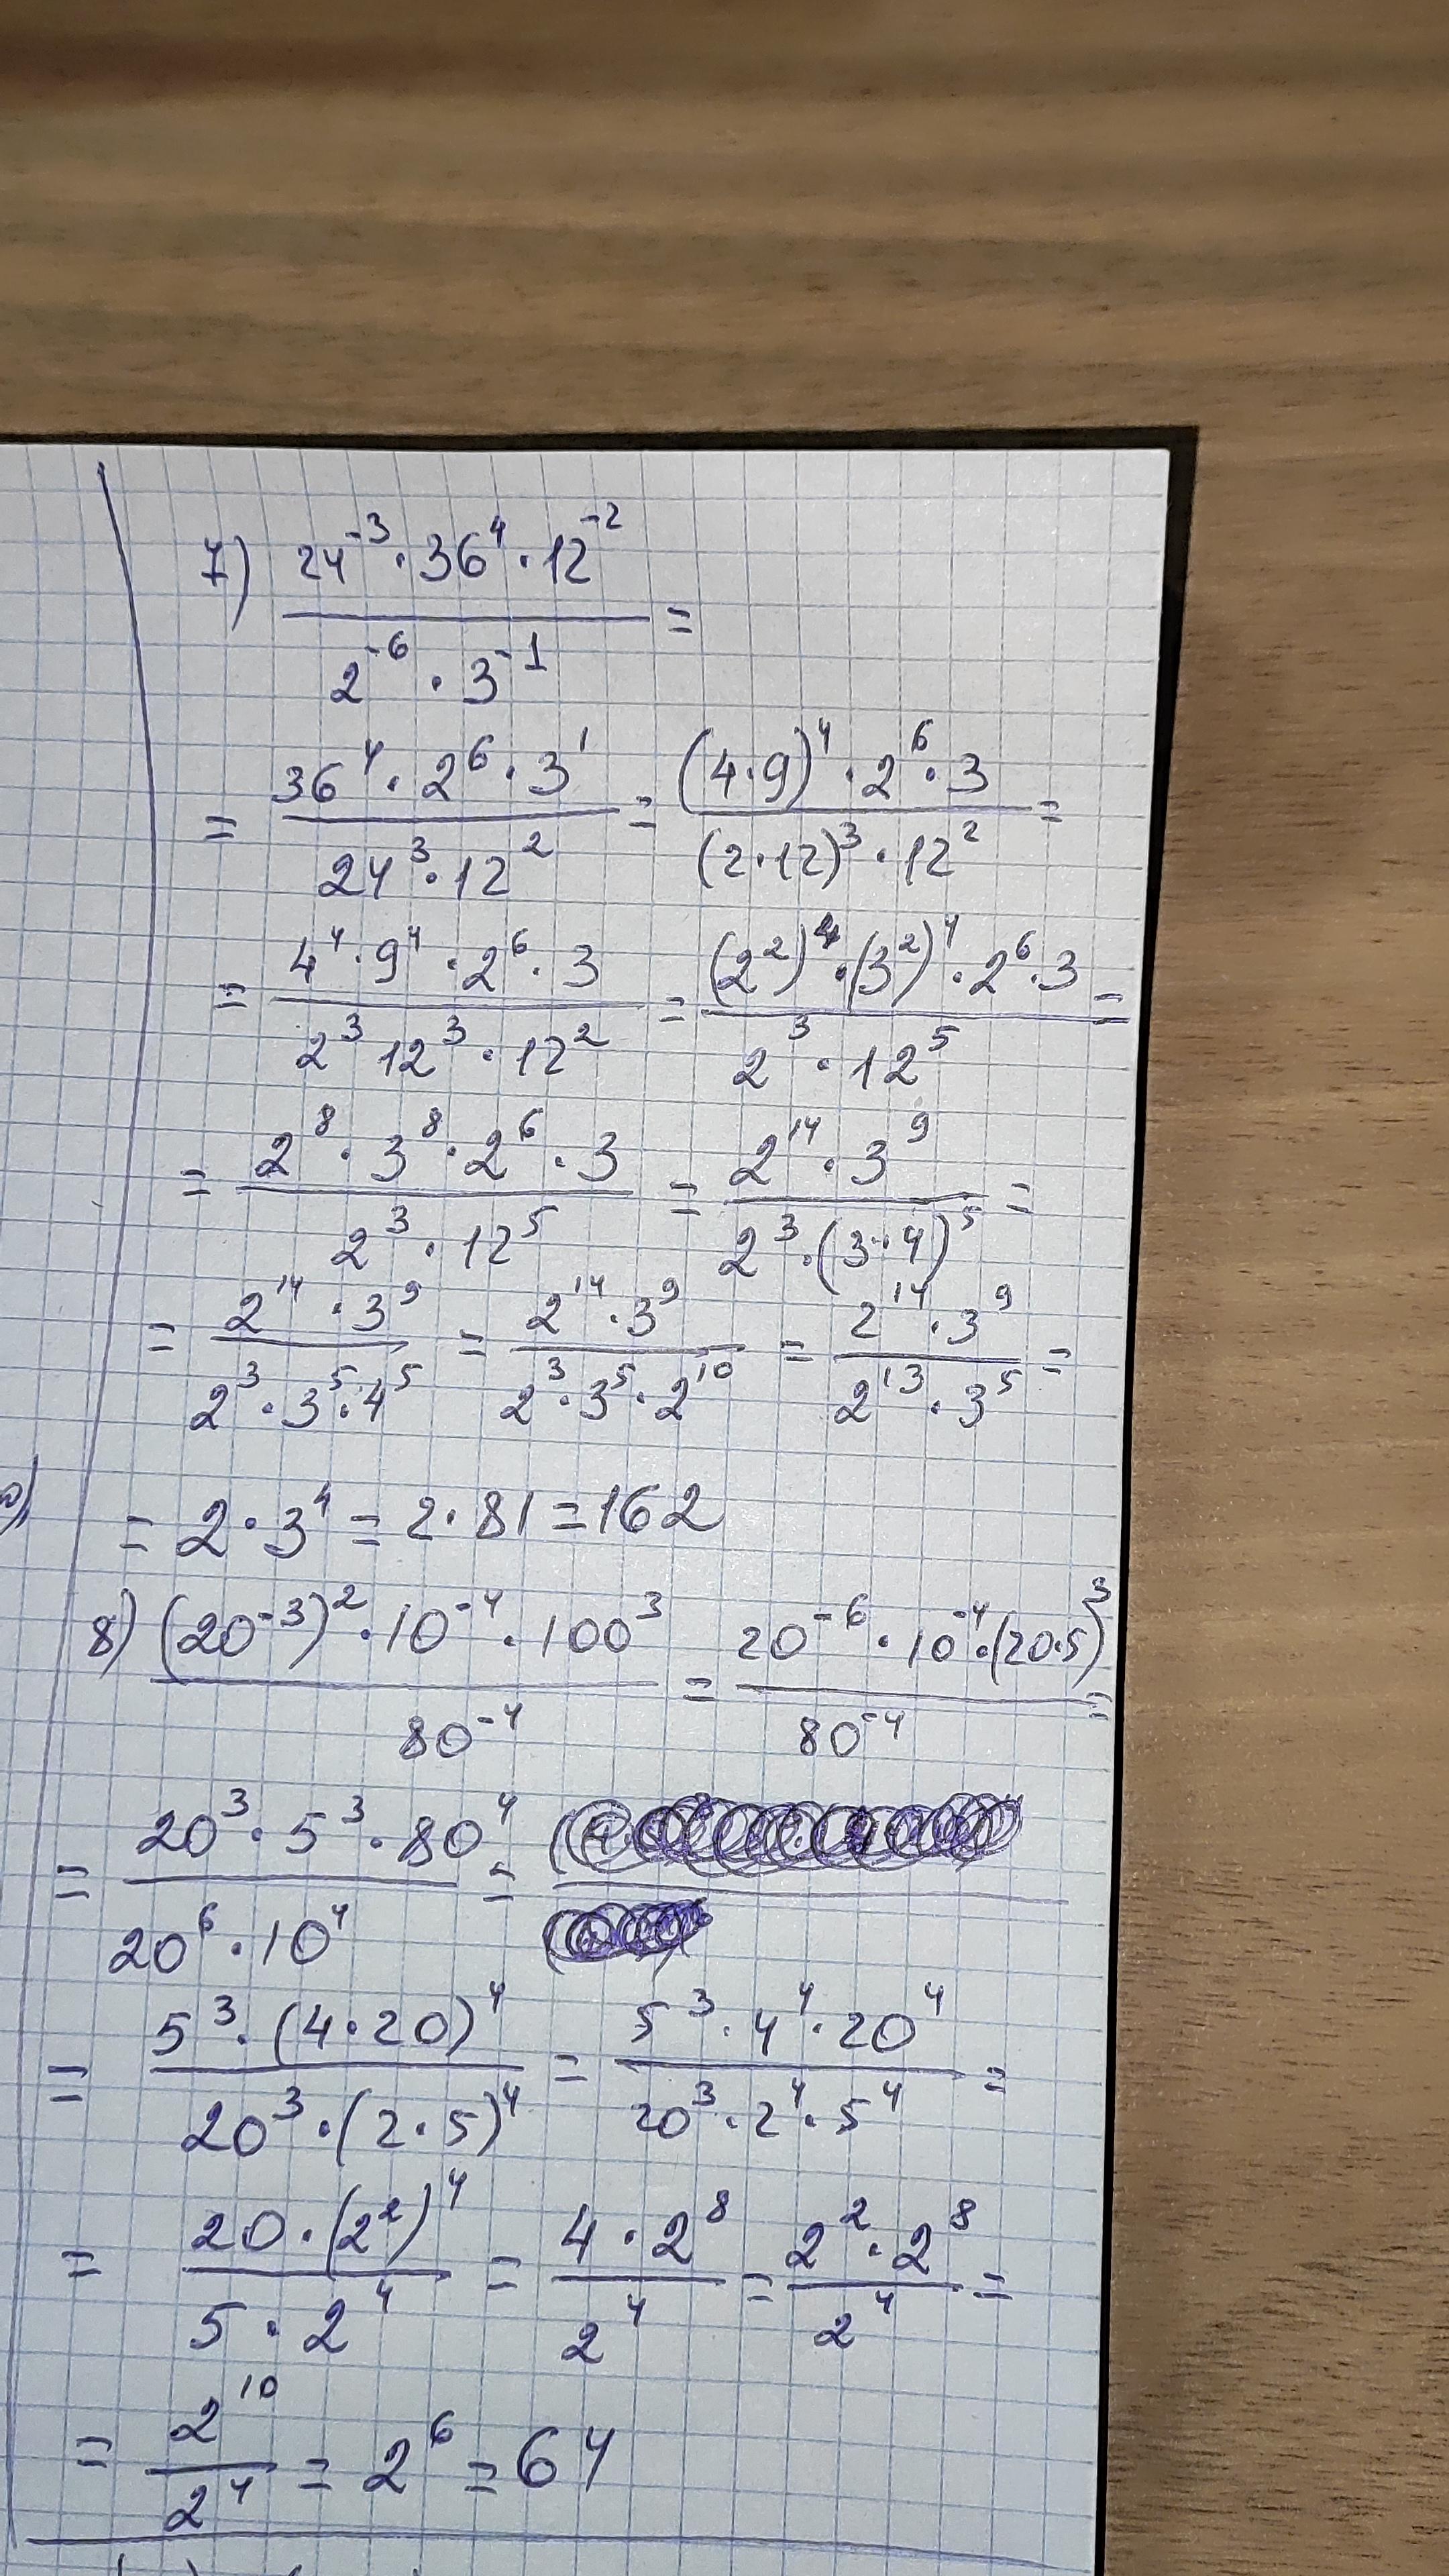 7) (24⁻³ · 36⁴ · 12⁻²) / (2⁻⁶ · 3⁻¹) =
= (36⁴ · 2⁶ · 3¹) / (24³ · 12²) = ((4·9)⁴ · 2⁶ · 3) / ((2·12)³ · 12²) =
= (4⁴ · 9⁴ · 2⁶ · 3) / (2³ 12³ · 12²) = ((2²)⁴ · (3²)⁴ · 2⁶ · 3) / (2³ · 12⁵) =
= (2⁸ · 3⁸ · 2⁶ · 3) / (2³ · 12⁵) = (2¹⁴ · 3⁹) / (2³ · (3·4)⁵) =
= (2¹⁴ · 3⁹) / (2³ · 3⁵ · 4⁵) = (2¹⁴ · 3⁹) / (2³ · 3⁵ · 2¹⁰) = (2¹⁴ · 3⁹) / (2¹³ · 3⁵) =
= 2 · 3⁴ = 2 · 81 = 162
8) ((20⁻³)² · 10⁻⁴ · 100³) / 80⁻⁴ = (20⁻⁶ · 10⁻⁴ · (20·5)³) / 80⁻⁴ =
= (20³ · 5³ · 80⁴) / (20⁶ · 10⁴) =
= (5³ · (4·20)⁴) / (20³ · (2·5)⁴) = (5³ · 4⁴ · 20⁴) / (20³ · 2⁴ · 5⁴) =
= (20 · (2²)⁴) / (5 · 2⁴) = (4 · 2⁸) / 2⁴ = (2² · 2⁸) / 2⁴ =
= 2¹⁰ / 2⁴ = 2⁶ = 64